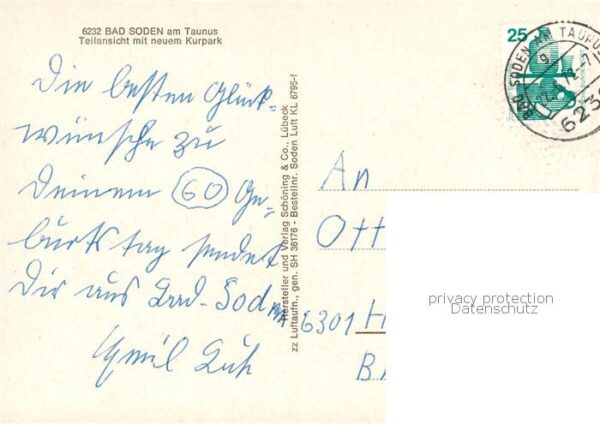 6232 BAD SODEN am Taunus
Teilansicht mit neuem Kurpark
Die besten Glück-
wünsche zu
Deinem 60 Ge-
burtstag sendet
Dir aus Bad-Soden
Emil
Hersteller und Verlag Schöning & Co., Lübeck
zz Luftaufn., gen. SH 38176 - Bestellnr. Soden Luft KL 6795-f
25
BAD SODEN AM TAUNUS
g
623
An
Ott
6301 H
B
privacy protection
Datenschutz